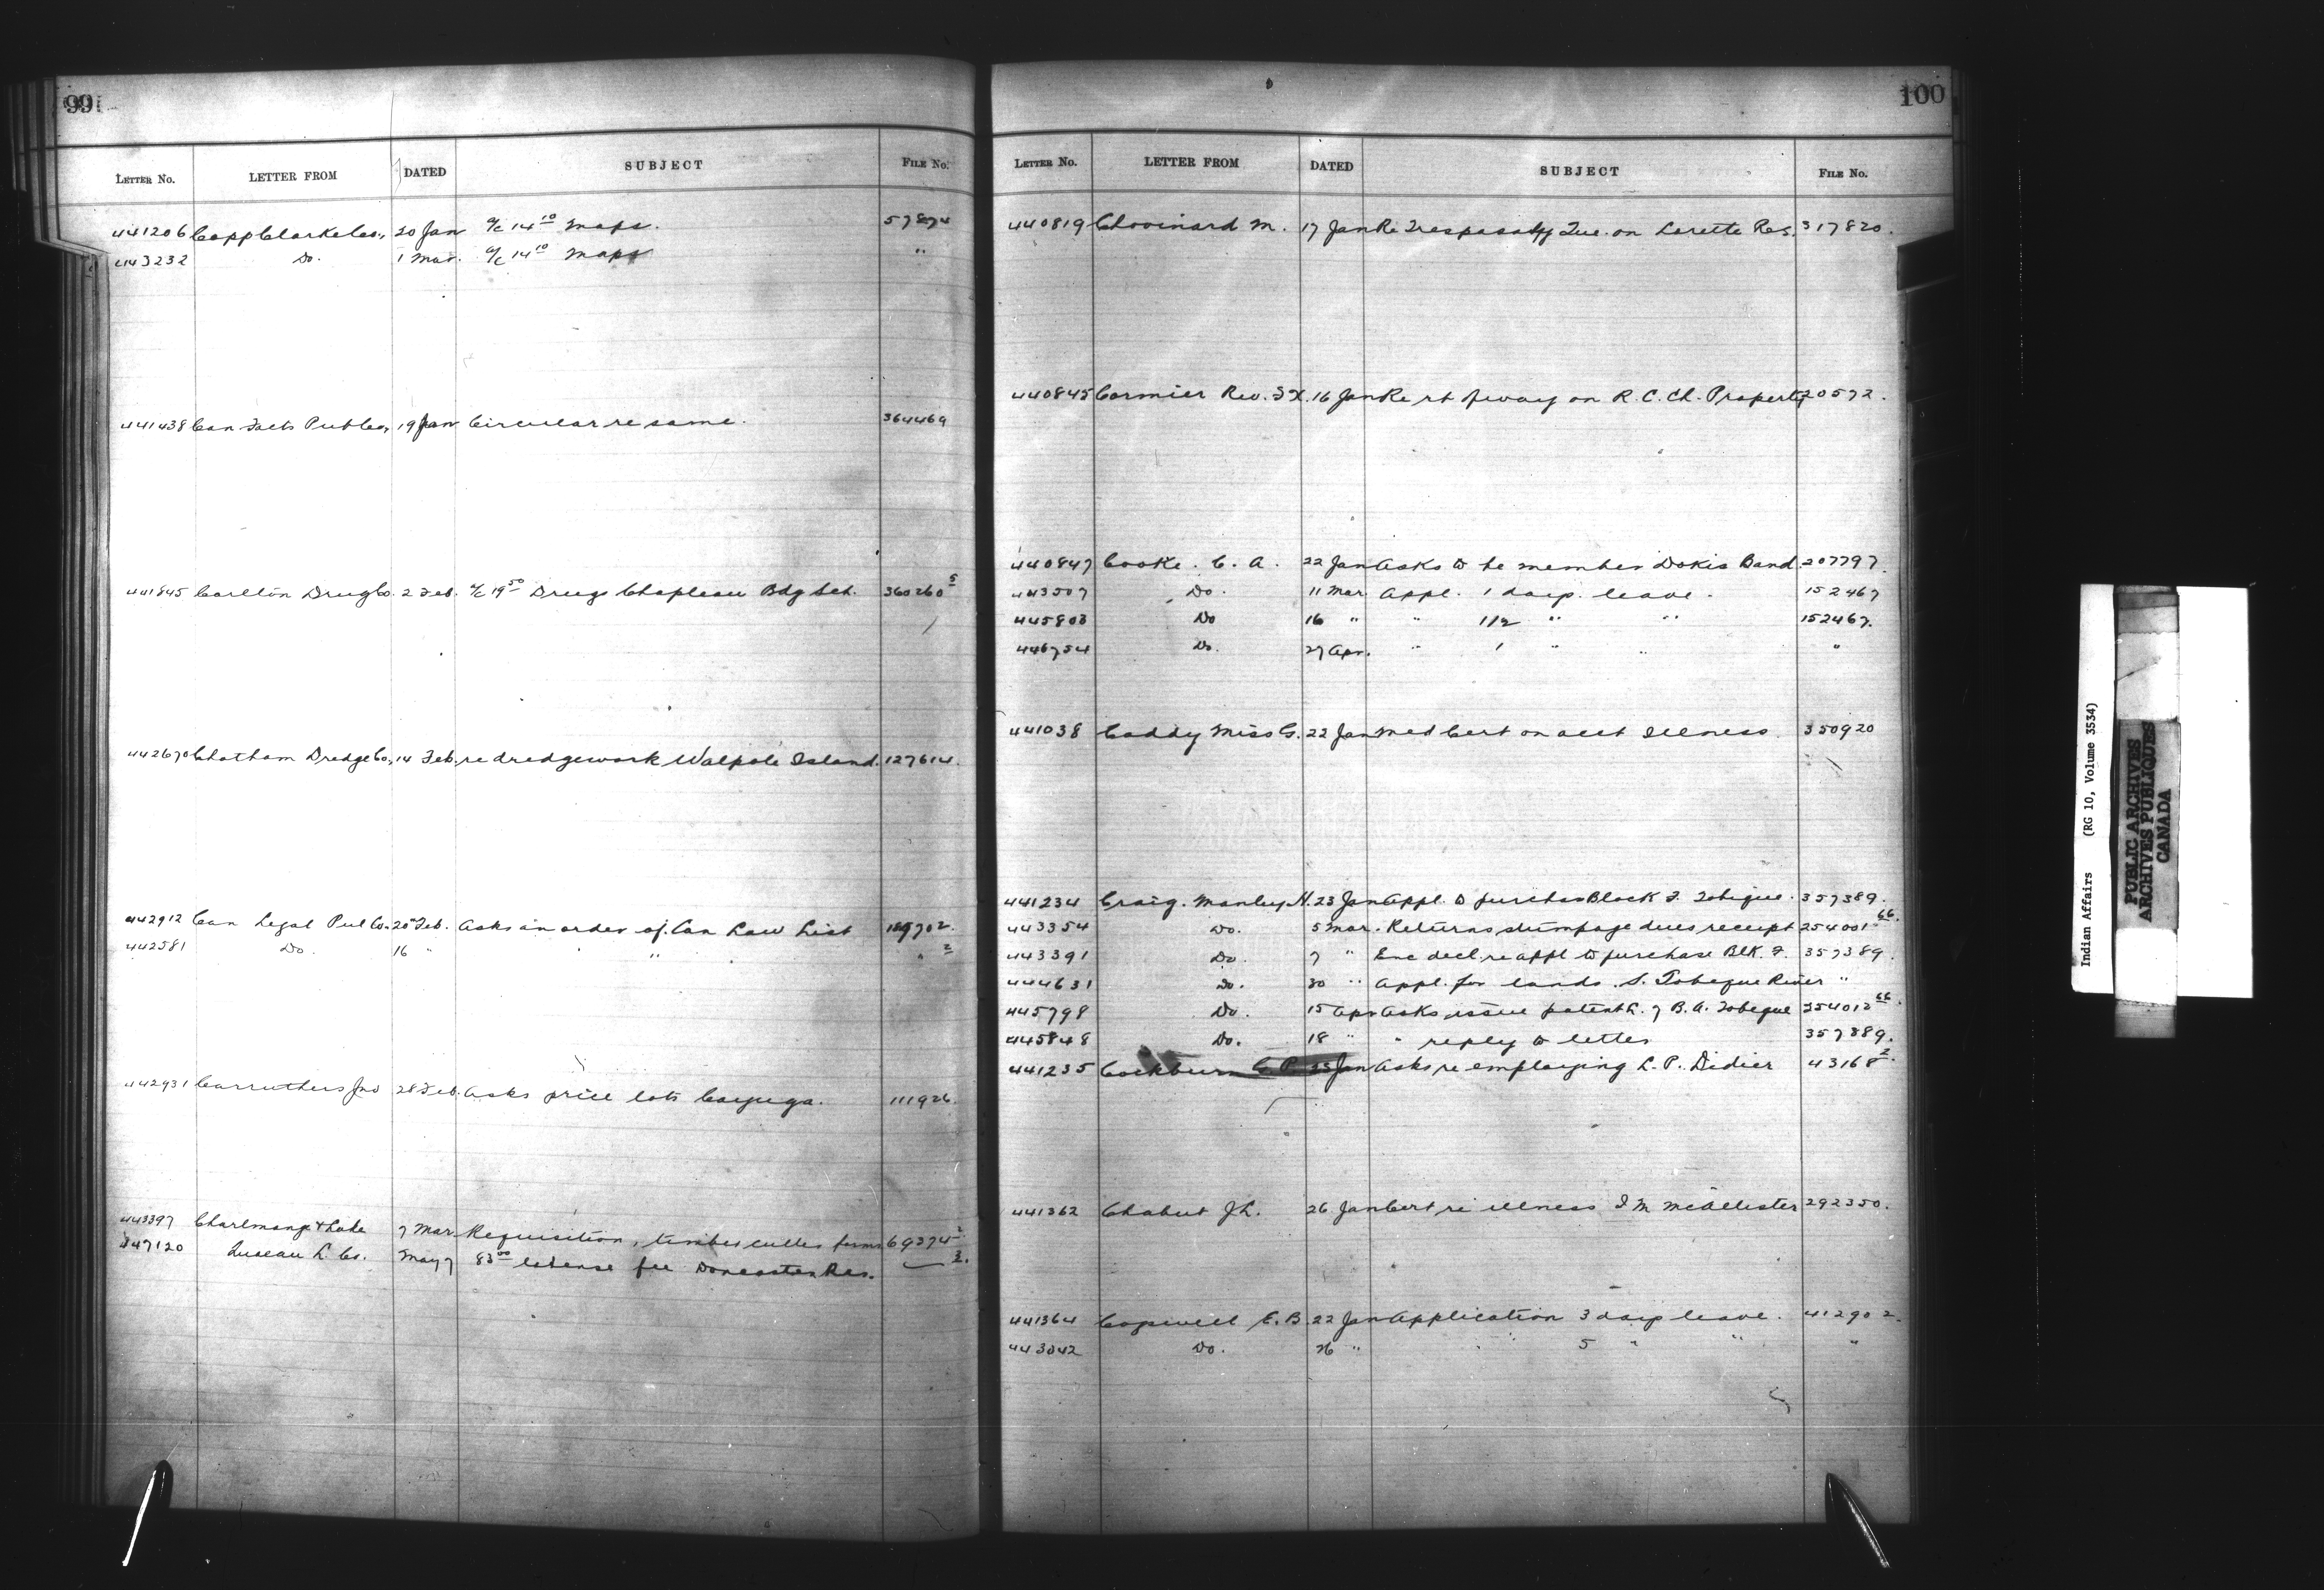 99
LETTER No. LETTER FROM DATED SUBJECT FILE No.
441206 Copp Clarke Co., 20 Jan a/c 14 10 maps. 57874
443232 Do. 1 Mar. a/c 14 10 maps "
441438 Can Facts Pub Co, 19 Jan Circular re same. 364469
441845 Carlton Drug Co. 2 Feb. a/c 19 50 Drugs Chapleau Bdg Sch. 360260 5
442670 Chatham Dredge Co., 14 Feb. re dredgework Walpole Island. 127614.
442912 Can Legal Pub Co. 25 Feb. Asks an order of Can Law List 2
442581 Do. 16 " " " 2
442931 Carruthers Jno 28 Feb. Asks price lots Cayuga. 111926.
443397 Charlmange & Lake 7 Mar Requisition, timber culler forms 69374 2
447120 L. Co. May 7 83 00 license fee Doncaster Res. 2.
100
LETTER No. LETTER FROM DATED SUBJECT FILE No.
440819 Chouinard M. 17 Jan Re Trespass by Que. on Lorette Res. 317820.
440845 Cormier Rev. F X. 16 Jan Re rt of way on R. C. Ch. Property 20572.
440847 Cooke. C. A. 22 Jan Asks to be member Dokis Band. 207797.
443507 Do. 11 Mar. Appl. 1 days leave. 152467
445803 Do 16 " " 1 1/2 " " 152467.
446754 Do. 27 Apr. " 1 " " "
441038 Caddy Miss G. 22 Jan Med Cert on acct Illness. 350920
441234 Craig. Manley H. 23 Jan Appl. to purchas Block F. Tobique. 357389.
443354 Do. 5 Mar. Returns stumpage dues receipt 254001 66.
443391 Do 7 " Enc decl. re appl to purchase Blk. F. 357389.
444631 Do. 30 " Appl. for lands. S. Tobique River "
445798 Do. 15 Apr Asks issue patent L. 7 B. A. Tobique 254012 66.
445848 Do. 18 " " reply to letter 357389.
441235 Cockburn G P. 25 Jan Asks re employing L. P. Didier 43168 2.
441362 Chabut J L. 26 Jan Cert re illness J M McAllister 292350.
441364 Cogswell E. B. 22 Jan Application 3 days leave. 41290 2.
443042 Do. 26 " " 5 " " "
Indian Affairs (RG 10, Volume 3534)
PUBLIC ARCHIVES
ARCHIVES PUBLIQUES
CANADA